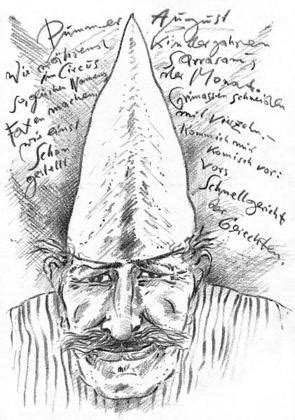 Dummer August
Wie während Kinderjahren
im Circus Sarrasani
Namens der
Faxen machen Grimassen schneiden
wie einst mit
komm ich mir
schon komisch vor:
gestellt vors
Schnellgericht
der
Gerechten.